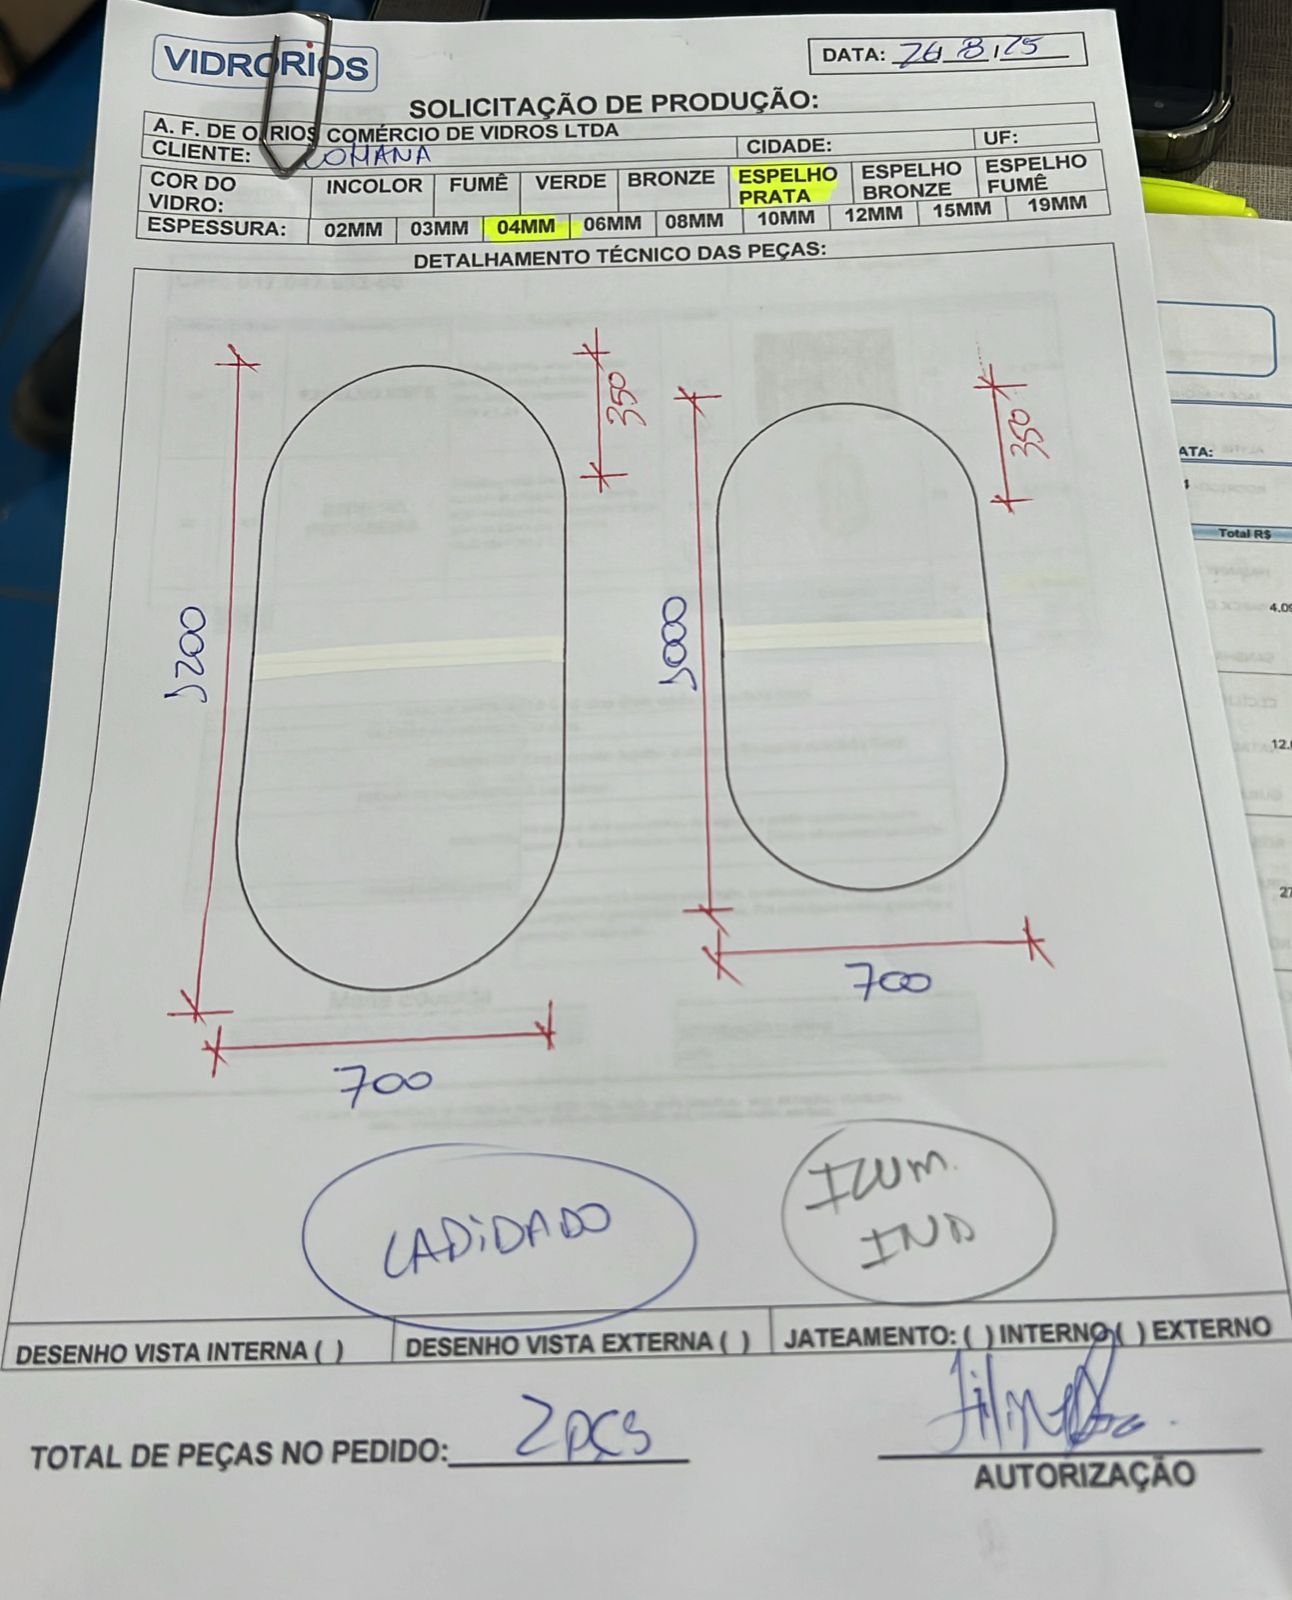 VIDRORIOS
DATA: 26, 8, 25
SOLICITAÇÃO DE PRODUÇÃO:
A. F. DE O. RIOS COMÉRCIO DE VIDROS LTDA
CLIENTE: LOHANA CIDADE: UF:
COR DO VIDRO: INCOLOR FUMÊ VERDE BRONZE ESPELHO PRATA ESPELHO BRONZE ESPELHO FUMÊ
ESPESSURA: 02MM 03MM 04MM 06MM 08MM 10MM 12MM 15MM 19MM
DETALHAMENTO TÉCNICO DAS PEÇAS:
350
350
1200
1000
700
700
LAPIDADO
ILUM.
IND
DESENHO VISTA INTERNA ( ) DESENHO VISTA EXTERNA ( ) JATEAMENTO: ( ) INTERNO ( ) EXTERNO
TOTAL DE PEÇAS NO PEDIDO: 2 PÇS
AUTORIZAÇÃO
ATA:
Total R$
4.09
12.
27